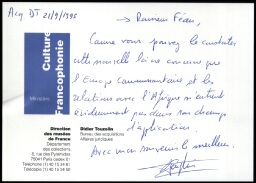 Acq DT 21/9/1996
→ Romain Féau,
Comme vous pouvez le constater
cette nouvelle loi ne concerne que
l'Europe Communautaire et les
relations avec l'Afrique n'entrent
évidemment pas dans son champ
d'application.
Avec mon souvenir le meilleur.
Culture
Francophonie
Ministère
Direction
des musées
de France
Département
des collections
6, rue des Pyramides
75041 Paris cedex 01
Téléphone (1) 40 15
Télécopie (1) 40 15
Didier Touzelin
Bureau des acquisitions
Affaires juridiques